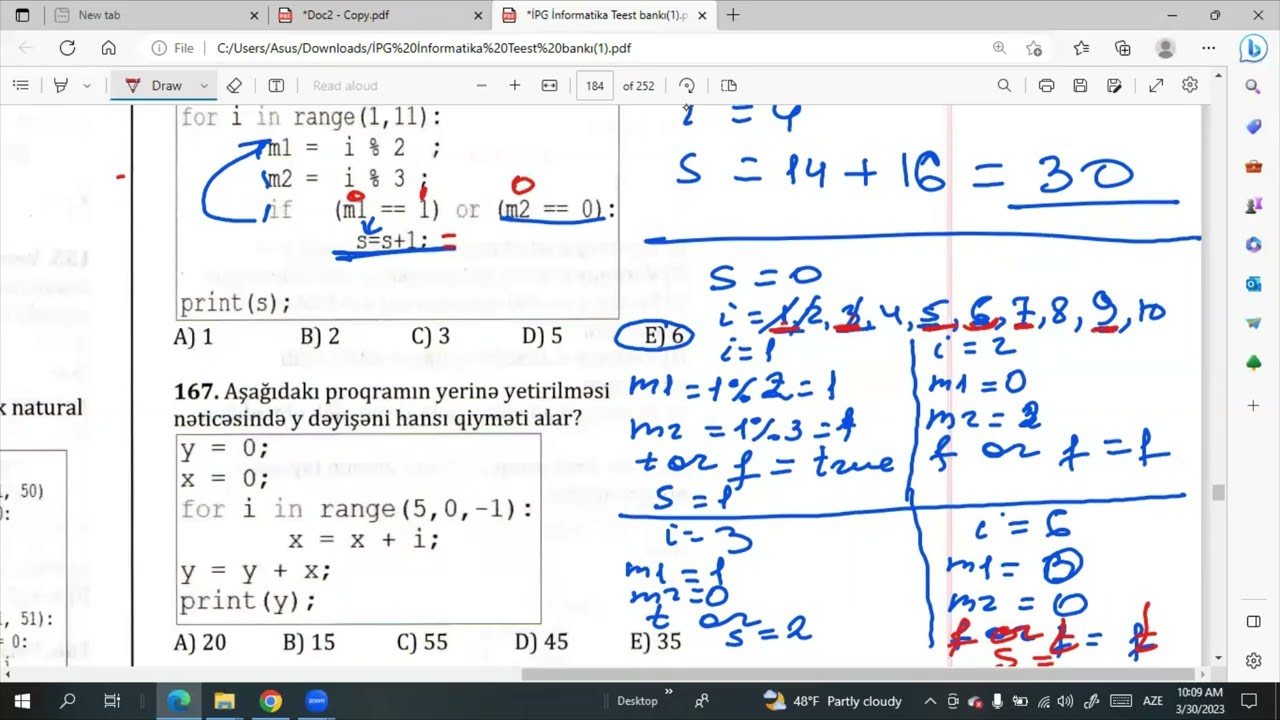 New tab
*Doc2 - Copy.pdf
*İPG İnformatika Teest bankı(1).p
File
C:/Users/Asus/Downloads/İPG%20İnformatika%20Teest%20bankı(1).pdf
Draw
Read aloud
184 of 252
for i in range(1,11):
m1 = i % 2 ;
m2 = i % 3 ;
if (m1 == 1) or (m2 == 0):
s=s+1; =
print(s);
A) 1 B) 2 C) 3 D) 5 E) 6
167. Aşağıdakı proqramın yerinə yetirilməsi
nəticəsində y dəyişəni hansı qiyməti alar?
y = 0;
x = 0;
for i in range(5,0,-1):
x = x + i;
y = y + x;
print(y);
A) 20 B) 15 C) 55 D) 45 E) 35
k natural
, 50)
, 51):
i = 4
S = 14 + 16 = 30
S = 0
i = 1, 2, 3, 4, 5, 6, 7, 8, 9, 10
i = 1
m1 = 1%2 = 1
m2 = 1%3 = 1
t or f = true
S = 1
i = 2
m1 = 0
m2 = 2
f or f = f
i = 3
m1 = 1
m2 = 0
t or
s = 2
i = 6
m1 = 0
m2 = 0
Desktop
48°F Partly cloudy
AZE
10:09 AM
3/30/2023